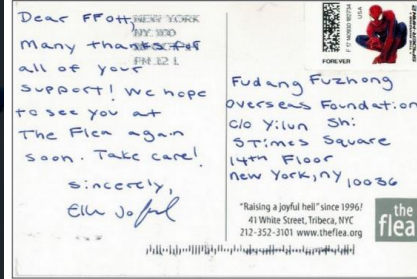 Dear FFOTT,
Many thanks for
all of your
support! We hope
to see you at
The Flea again
soon. Take care!
Sincerely,
NEW YORK
NY 100
PM 12 L
FOREVER
USA
Fudang Fuzhong
Overseas Foundation
c/o Yilun Shi
5 Times Square
14th Floor
New York, NY 10036
"Raising a joyful hell" since 1996!
41 White Street, Tribeca, NYC
212-352-3101 www.theflea.org
the
flea